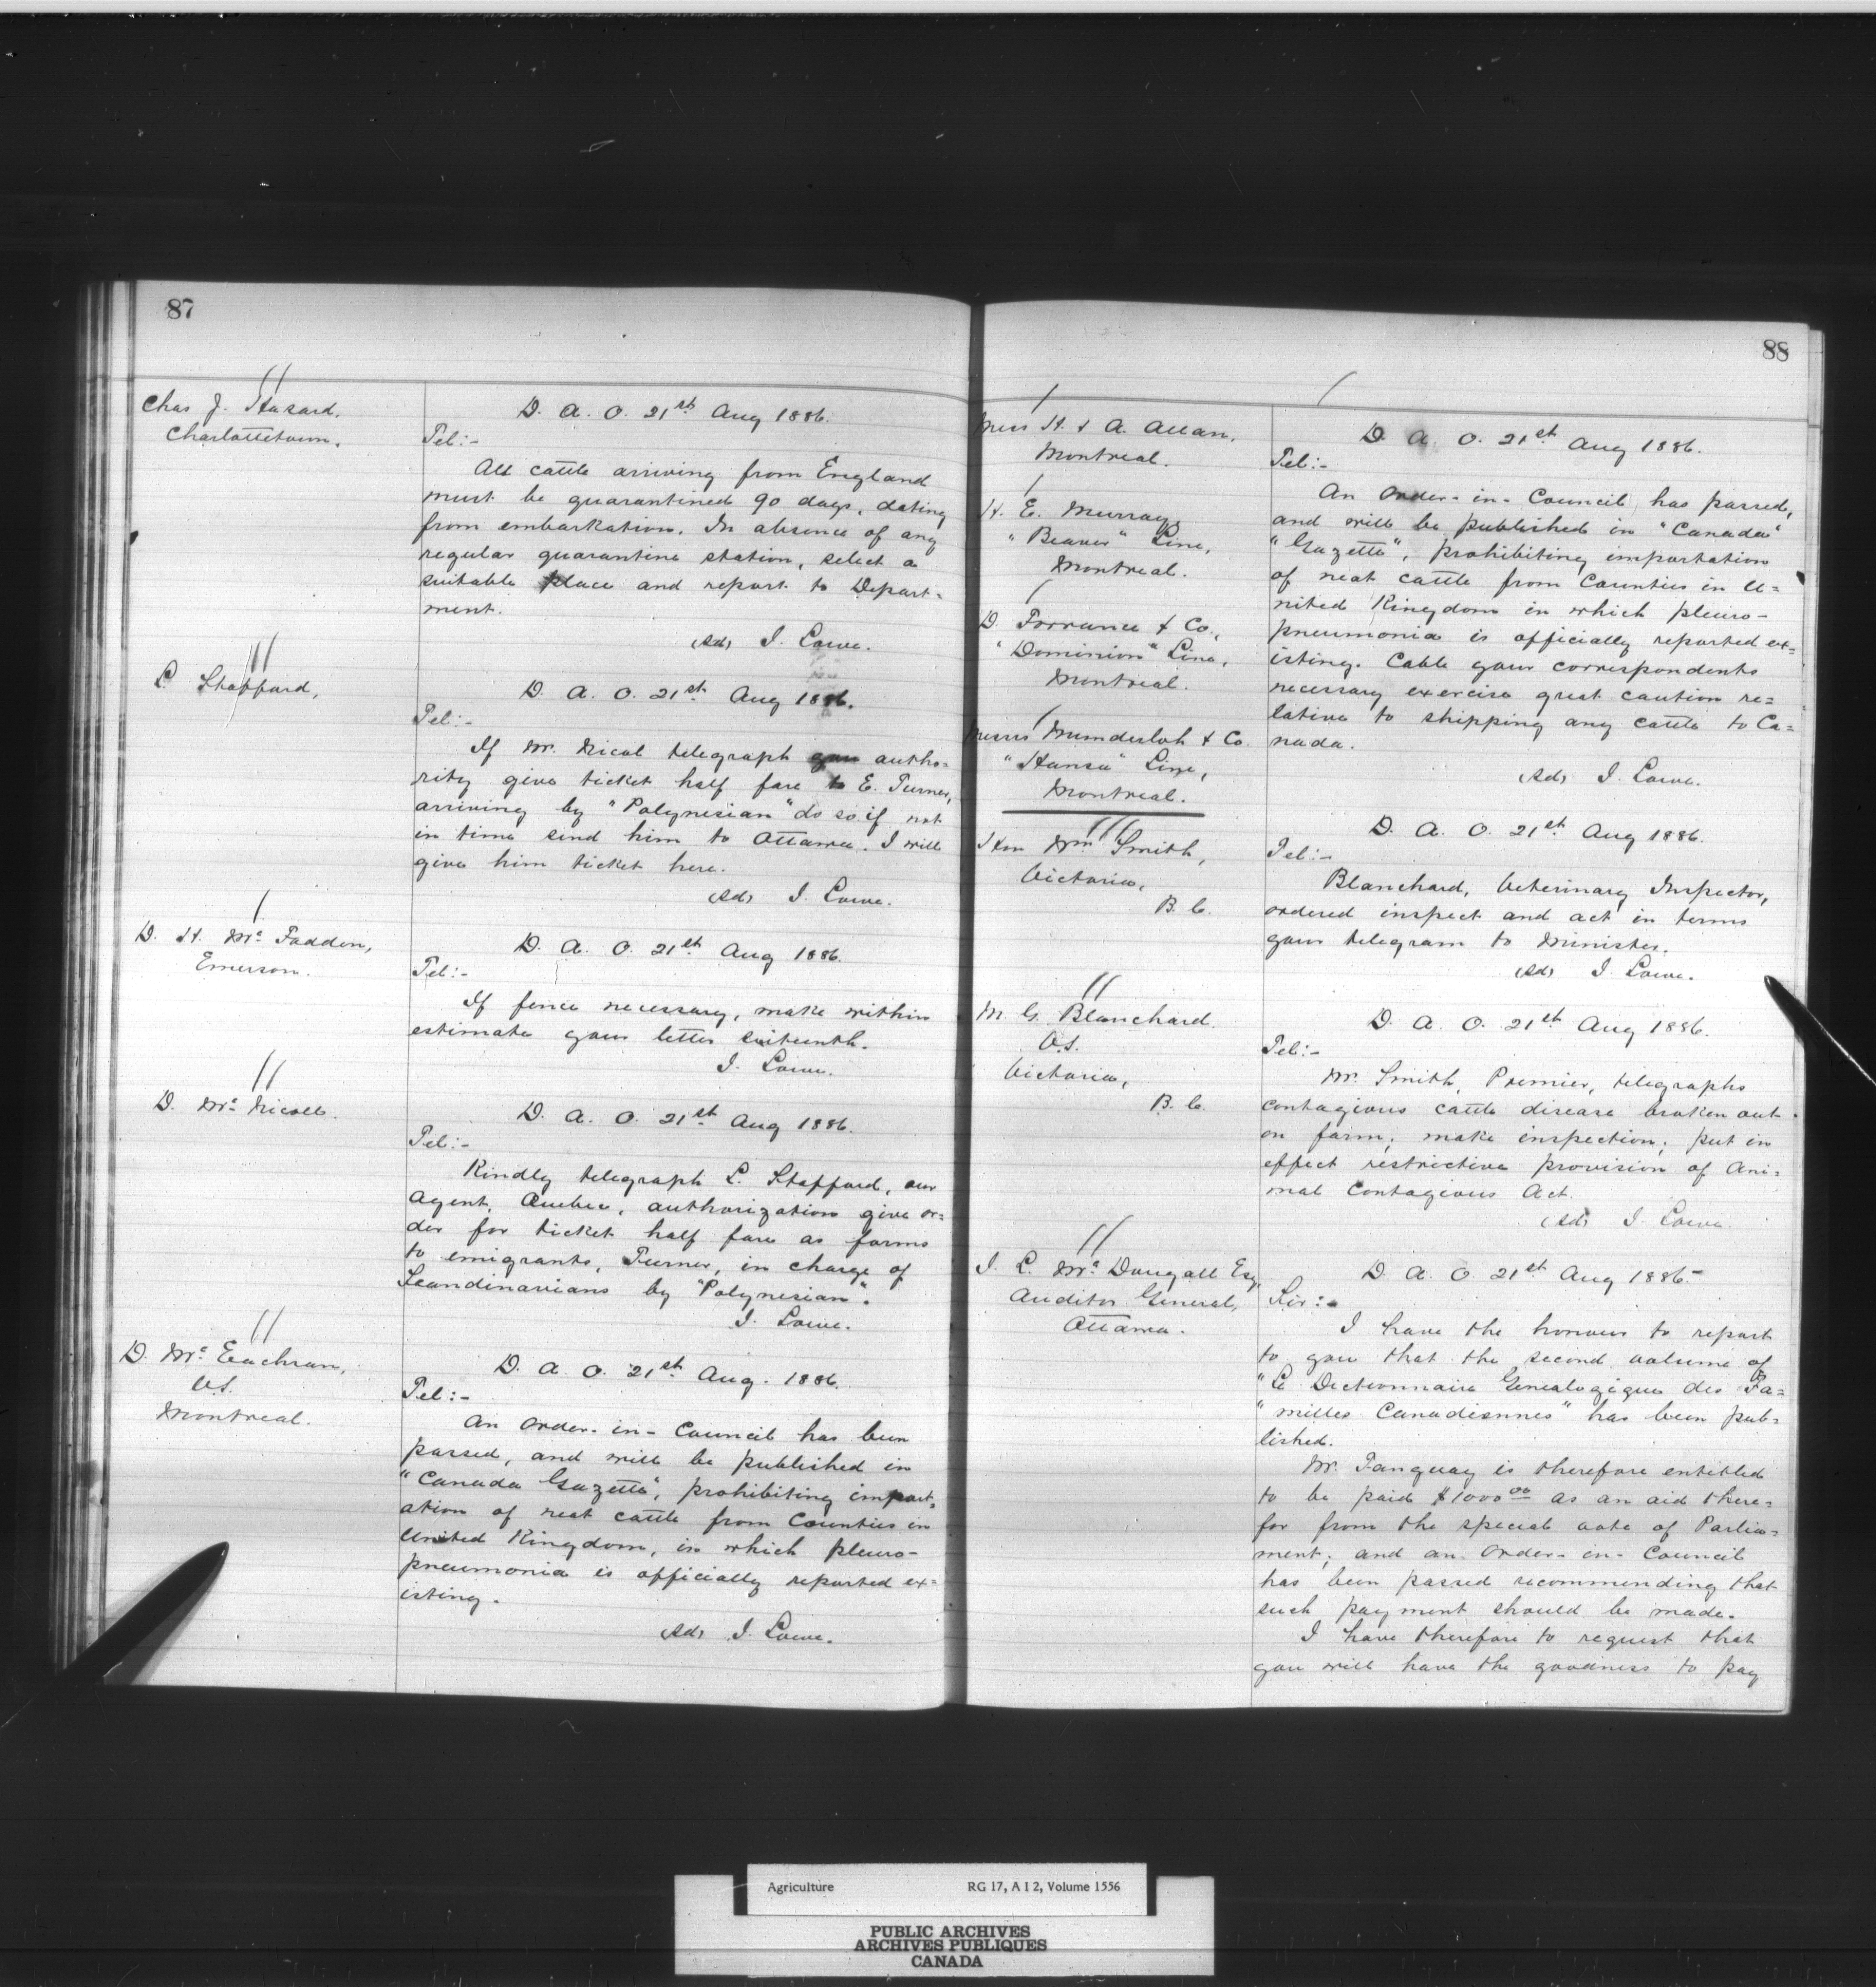 87
Chas J. Hazard.
Charlottetown.
D. A. O. 21st Aug 1886.
Tel:-
All cattle arriving from England
must be quarantined 90 days, dating
from embarkation. In absence of any
regular quarantine station, select a
suitable place and report to Depart=
ment.
(Sd) J. Lowe.
L. Stafford,
D. A. O. 21st Aug 1886.
Tel:-
If Mr. Nicol telegraph you autho=
rity give ticket half fare to E. Turner,
arriving by "Polynesian" do so if not
in time send him to Ottawa. I will
give him ticket here.
(Sd) J. Lowe.
D. H. McFadden,
Emerson.
D. A. O. 21st Aug 1886.
Tel:-
If fence necessary, make within
estimate your letter sixteenth.
J. Lowe.
D. McNicoll.
D. A. O. 21st Aug 1886.
Tel:-
Kindly telegraph L. Stafford, our
Agent, Quebec, authorization give or=
der for ticket half fare as farms
to emigrants, Turner, in charge of
Scandinavians by "Polynesian".
J. Lowe.
D. McEachran,
V.S.
Montreal.
D. A. O. 21st Aug. 1886.
Tel:-
An Order-in-Council has been
passed, and will be published in
"Canada Gazette", prohibiting import=
ation of neat cattle from Counties in
United Kingdom, in which pleuro-
pneumonia is officially reported ex=
isting.
(Sd) J. Lowe.
88
Mess H. & A. Allan,
Montreal.
H. E. Murray,
"Beaver" Line,
Montreal.
D. Torrance & Co.,
"Dominion" Line,
Montreal.
Messrs Munderloh & Co.
"Hansa" Line,
Montreal.
D. A. O. 21st Aug 1886.
Tel:-
An Order-in-Council, has passed,
and will be published in "Canada"
"Gazette", prohibiting importation
of neat cattle from Counties in U=
nited Kingdom in which pleuro-
pneumonia is officially reported ex=
isting. Cable your correspondents
necessary exercise great caution re=
lative to shipping any cattle to Ca=
nada.
(Sd) J. Lowe.
Hon Wm Smith,
Victoria,
B. C.
D. A. O. 21st Aug 1886.
Tel:-
Blanchard, Veterinary Inspector,
ordered inspect and act in terms
your telegram to Minister.
(Sd) J. Lowe.
M. G. Blanchard.
V.S.
Victoria,
B. C.
D. A. O. 21st Aug 1886.
Tel:-
Mr. Smith, Premier, telegraphs
contagious cattle disease broken out
on farm; make inspection; put in
effect restrictive provision of Ani=
mal Contagious Act.
(Sd) J. Lowe.
J. L. McDougall Esq,
Auditor General,
Ottawa.
D. A. O. 21st Aug 1886.
Sir:-
I have the honour to report
to you that the second volume of
"Le Dictionnaire Genealogique des Fa=
"milles Canadiennes" has been pub=
lished.
Mr. Tanguay is therefore entitled
to be paid $1000.00 as an aid there=
for from the special vote of Parlia=
ment; and an Order-in-Council
has been passed recommending that
such payment should be made.
I have therefore to request that
you will have the goodness to pay
Agriculture RG 17, A I 2, Volume 1556
PUBLIC ARCHIVES
ARCHIVES PUBLIQUES
CANADA